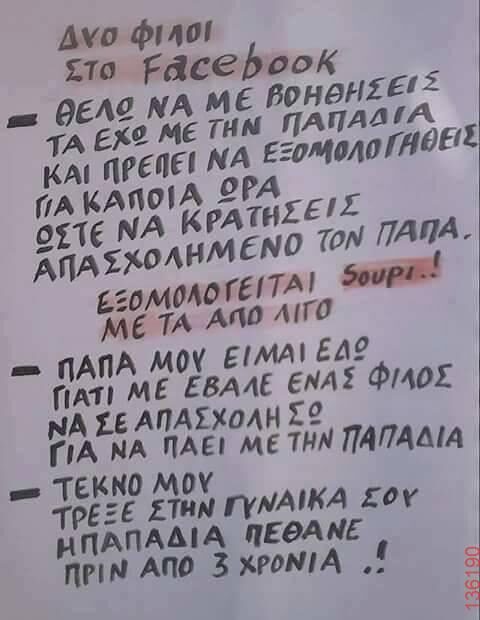 ΔΥΟ ΦΙΛΟΙ
ΣΤΟ Facebook
- ΘΕΛΩ ΝΑ ΜΕ ΒΟΗΘΗΣΕΙΣ
ΤΑ ΕΧΩ ΜΕ ΤΗΝ ΠΑΠΑΔΙΑ
ΚΑΙ ΠΡΕΠΕΙ ΝΑ ΕΞΟΜΟΛΟΓΗΘΕΙΣ
ΓΙΑ ΚΑΠΟΙΑ ΩΡΑ
ΩΣΤΕ ΝΑ ΚΡΑΤΗΣΕΙΣ
ΑΠΑΣΧΟΛΗΜΕΝΟ ΤΟΝ ΠΑΠΑ.
ΕΞΟΜΟΛΟΓΕΙΤΑΙ Soupi.!
ΜΕ ΤΑ ΑΠΟ ΛΙΓΟ
- ΠΑΠΑ ΜΟΥ ΕΙΜΑΙ ΕΔΩ
ΓΙΑΤΙ ΜΕ ΕΒΑΛΕ ΕΝΑΣ ΦΙΛΟΣ
ΝΑ ΣΕ ΑΠΑΣΧΟΛΗΣΩ
ΓΙΑ ΝΑ ΠΑΕΙ ΜΕ ΤΗΝ ΠΑΠΑΔΙΑ
- ΤΕΚΝΟ ΜΟΥ
ΤΡΕΞΕ ΣΤΗΝ ΓΥΝΑΙΚΑ ΣΟΥ
Η ΠΑΠΑΔΙΑ ΠΕΘΑΝΕ
ΠΡΙΝ ΑΠΟ 3 ΧΡΟΝΙΑ .!
136190